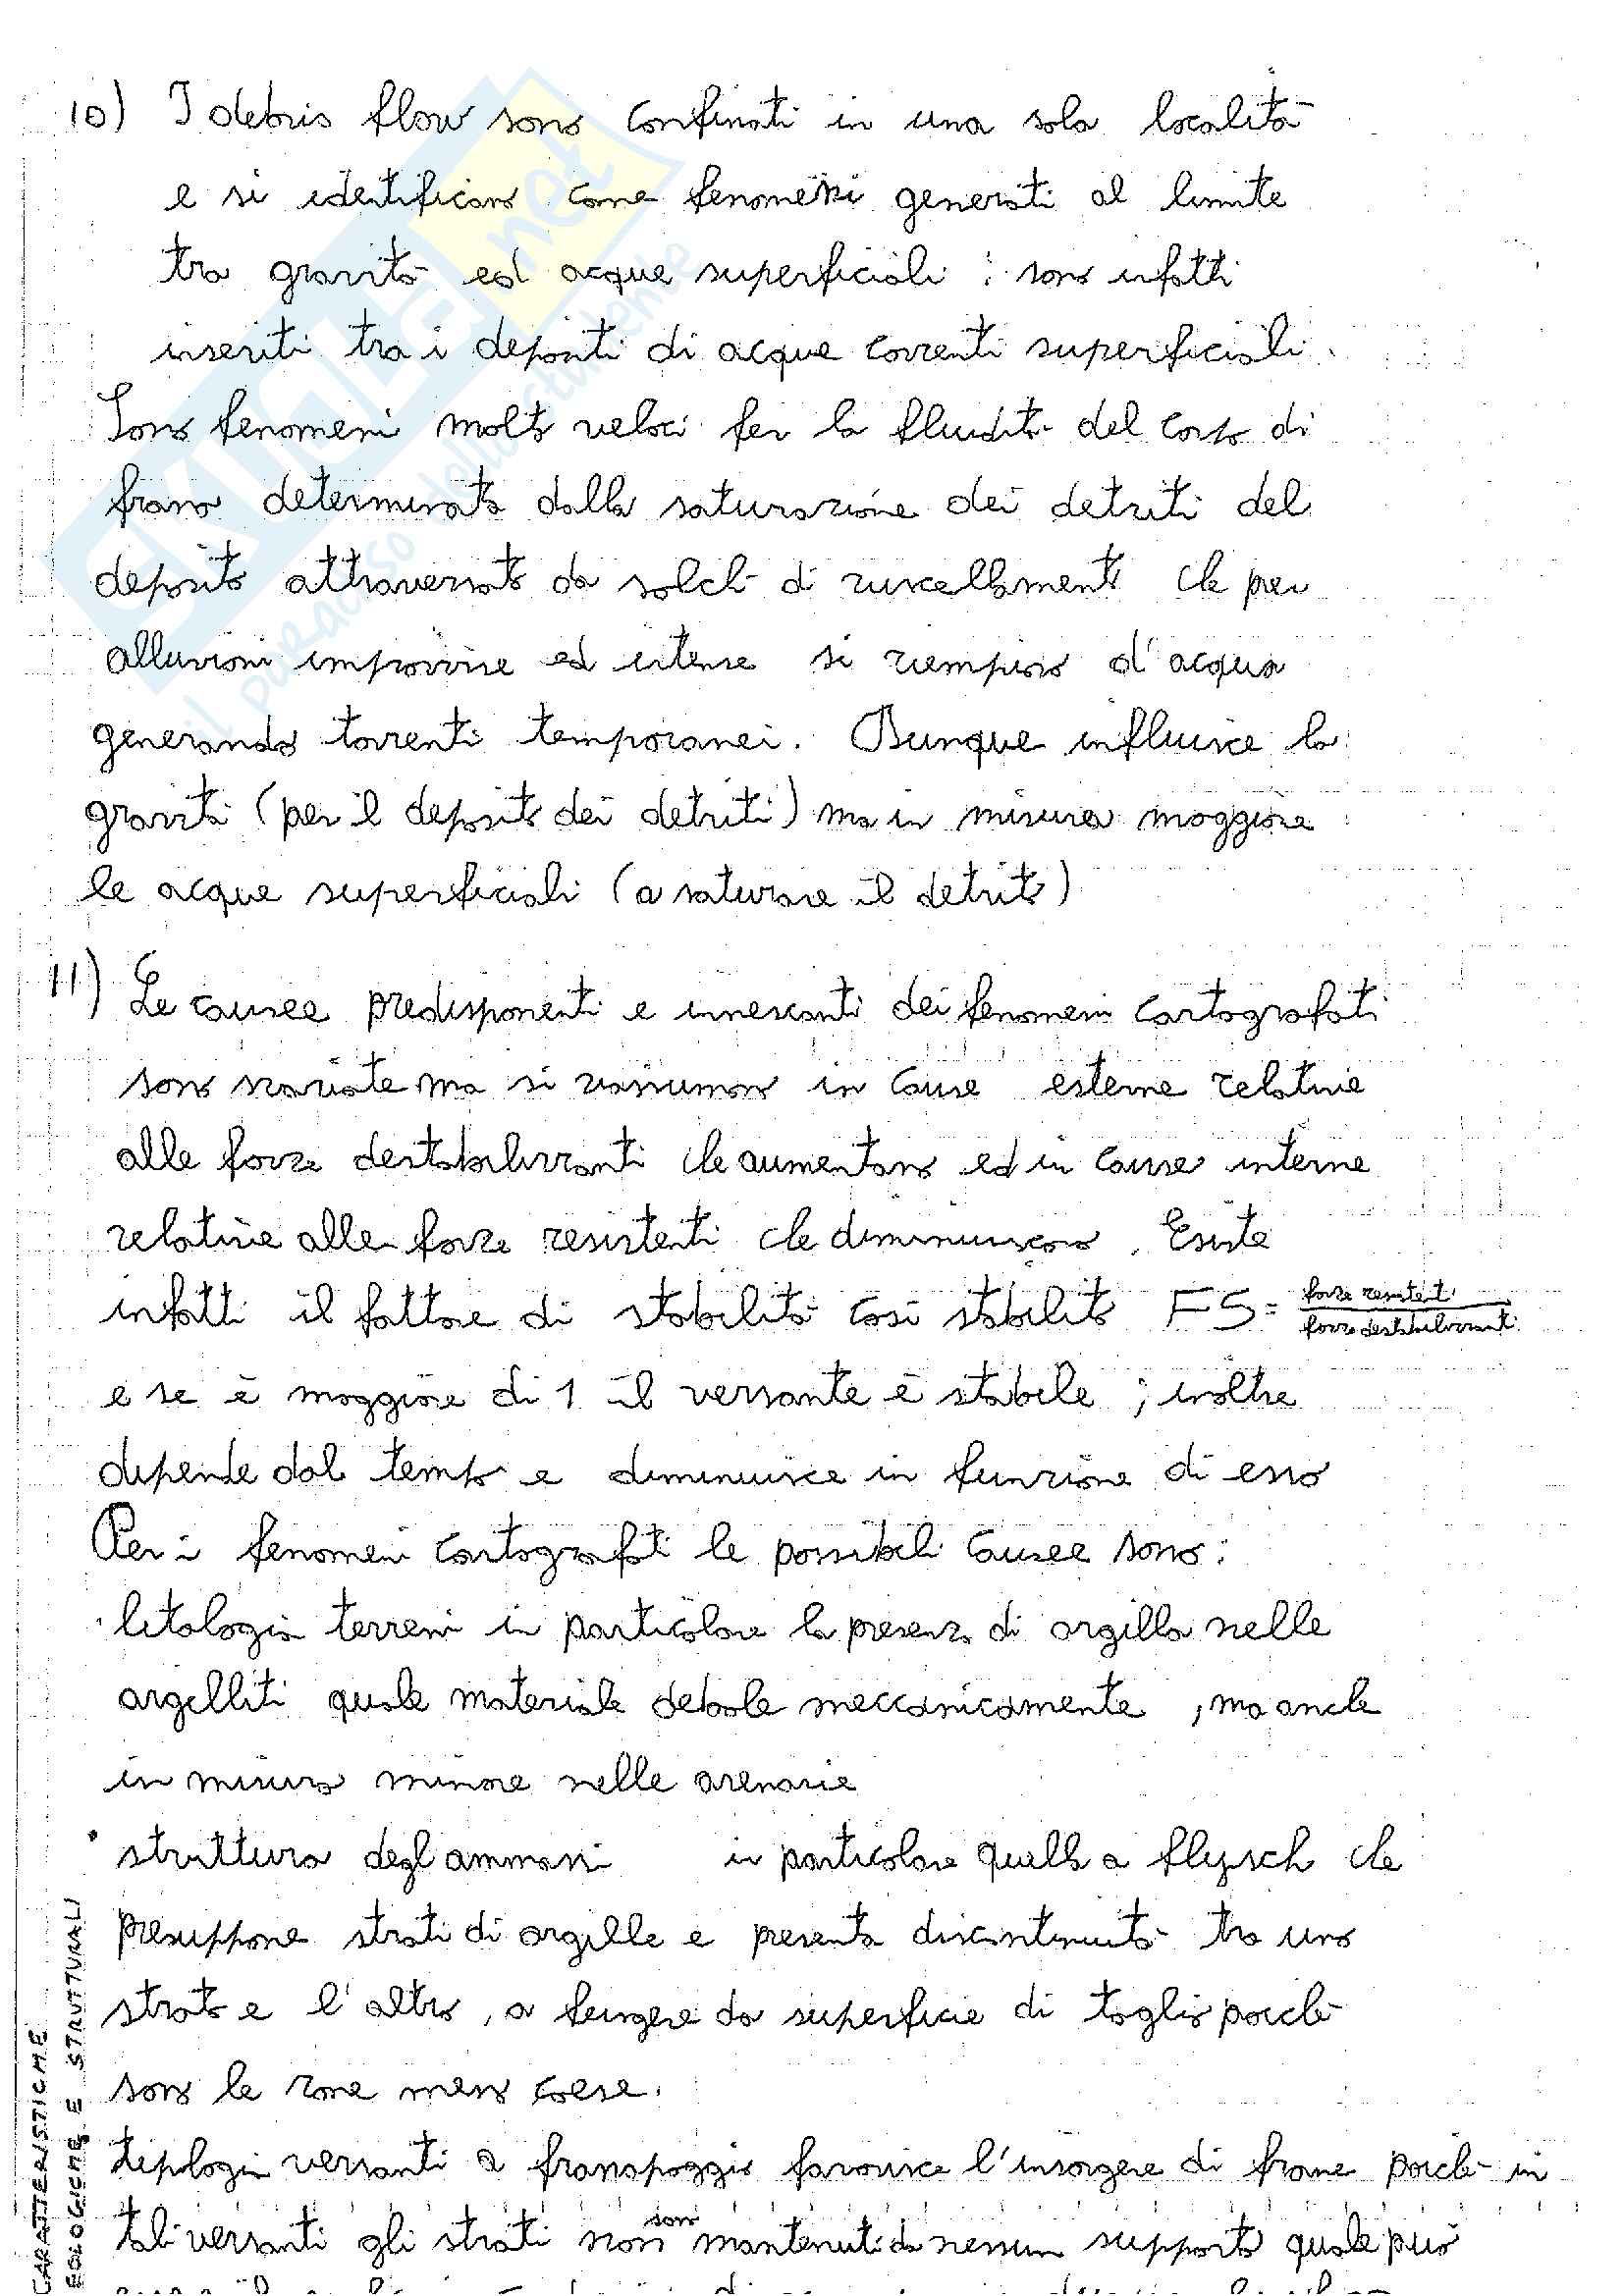 10) I debris flow sono confinati in una sola località
e si identificano come fenomeni generati al limite
tra gravità ed acque superficiali : sono infatti
inseriti tra i depositi di acque correnti superficiali.
Sono fenomeni molto veloci per la fluidità del corpo di
frana determinata dalla saturazione dei detriti del
deposito attraversato da solchi di ruscellamento che per
alluvioni improvvise ed intense si riempiono d'acqua
generando torrenti temporanei. Dunque influisce la
gravità (per il deposito dei detriti) ma in misura maggiore
le acque superficiali (a saturare il detrito)
11) Le causee predisponenti e innescanti dei fenomeni cartografati
sono svariate ma si riassumono in cause esterne relative
alle forze destabilizzanti che aumentano ed in cause interne
relative alle forze resistenti che diminuiscono. Esiste
infatti il fattore di stabilità così stabilito FS = forze resistenti
forze destabilizzanti
e se è maggiore di 1 il versante è stabile ; inoltre
dipende dal tempo e diminuisce in funzione di esso
Per i fenomeni cartografati le possibili causee sono:
· litologia terreni in particolare la presenza di argilla nelle
argilliti quale materiale debole meccanicamente, ma anche
in misura minore nelle arenarie
· struttura degl ammassi in particolare quella a flysch che
presuppone strati di argille e presenta discontinuità tra uno
strato e l'altro, a fungere da superficie di taglio poichè
sono le zone meno coese.
tipologia versanti a franapoggio favorisce l'insorgere di frane poichè in
tali versanti gli strati non sono mantenuti da nessun supporto quale può
CARATTERISTICHE
EOLOGICHE E STRUTTURALI
il paradiso dello studente